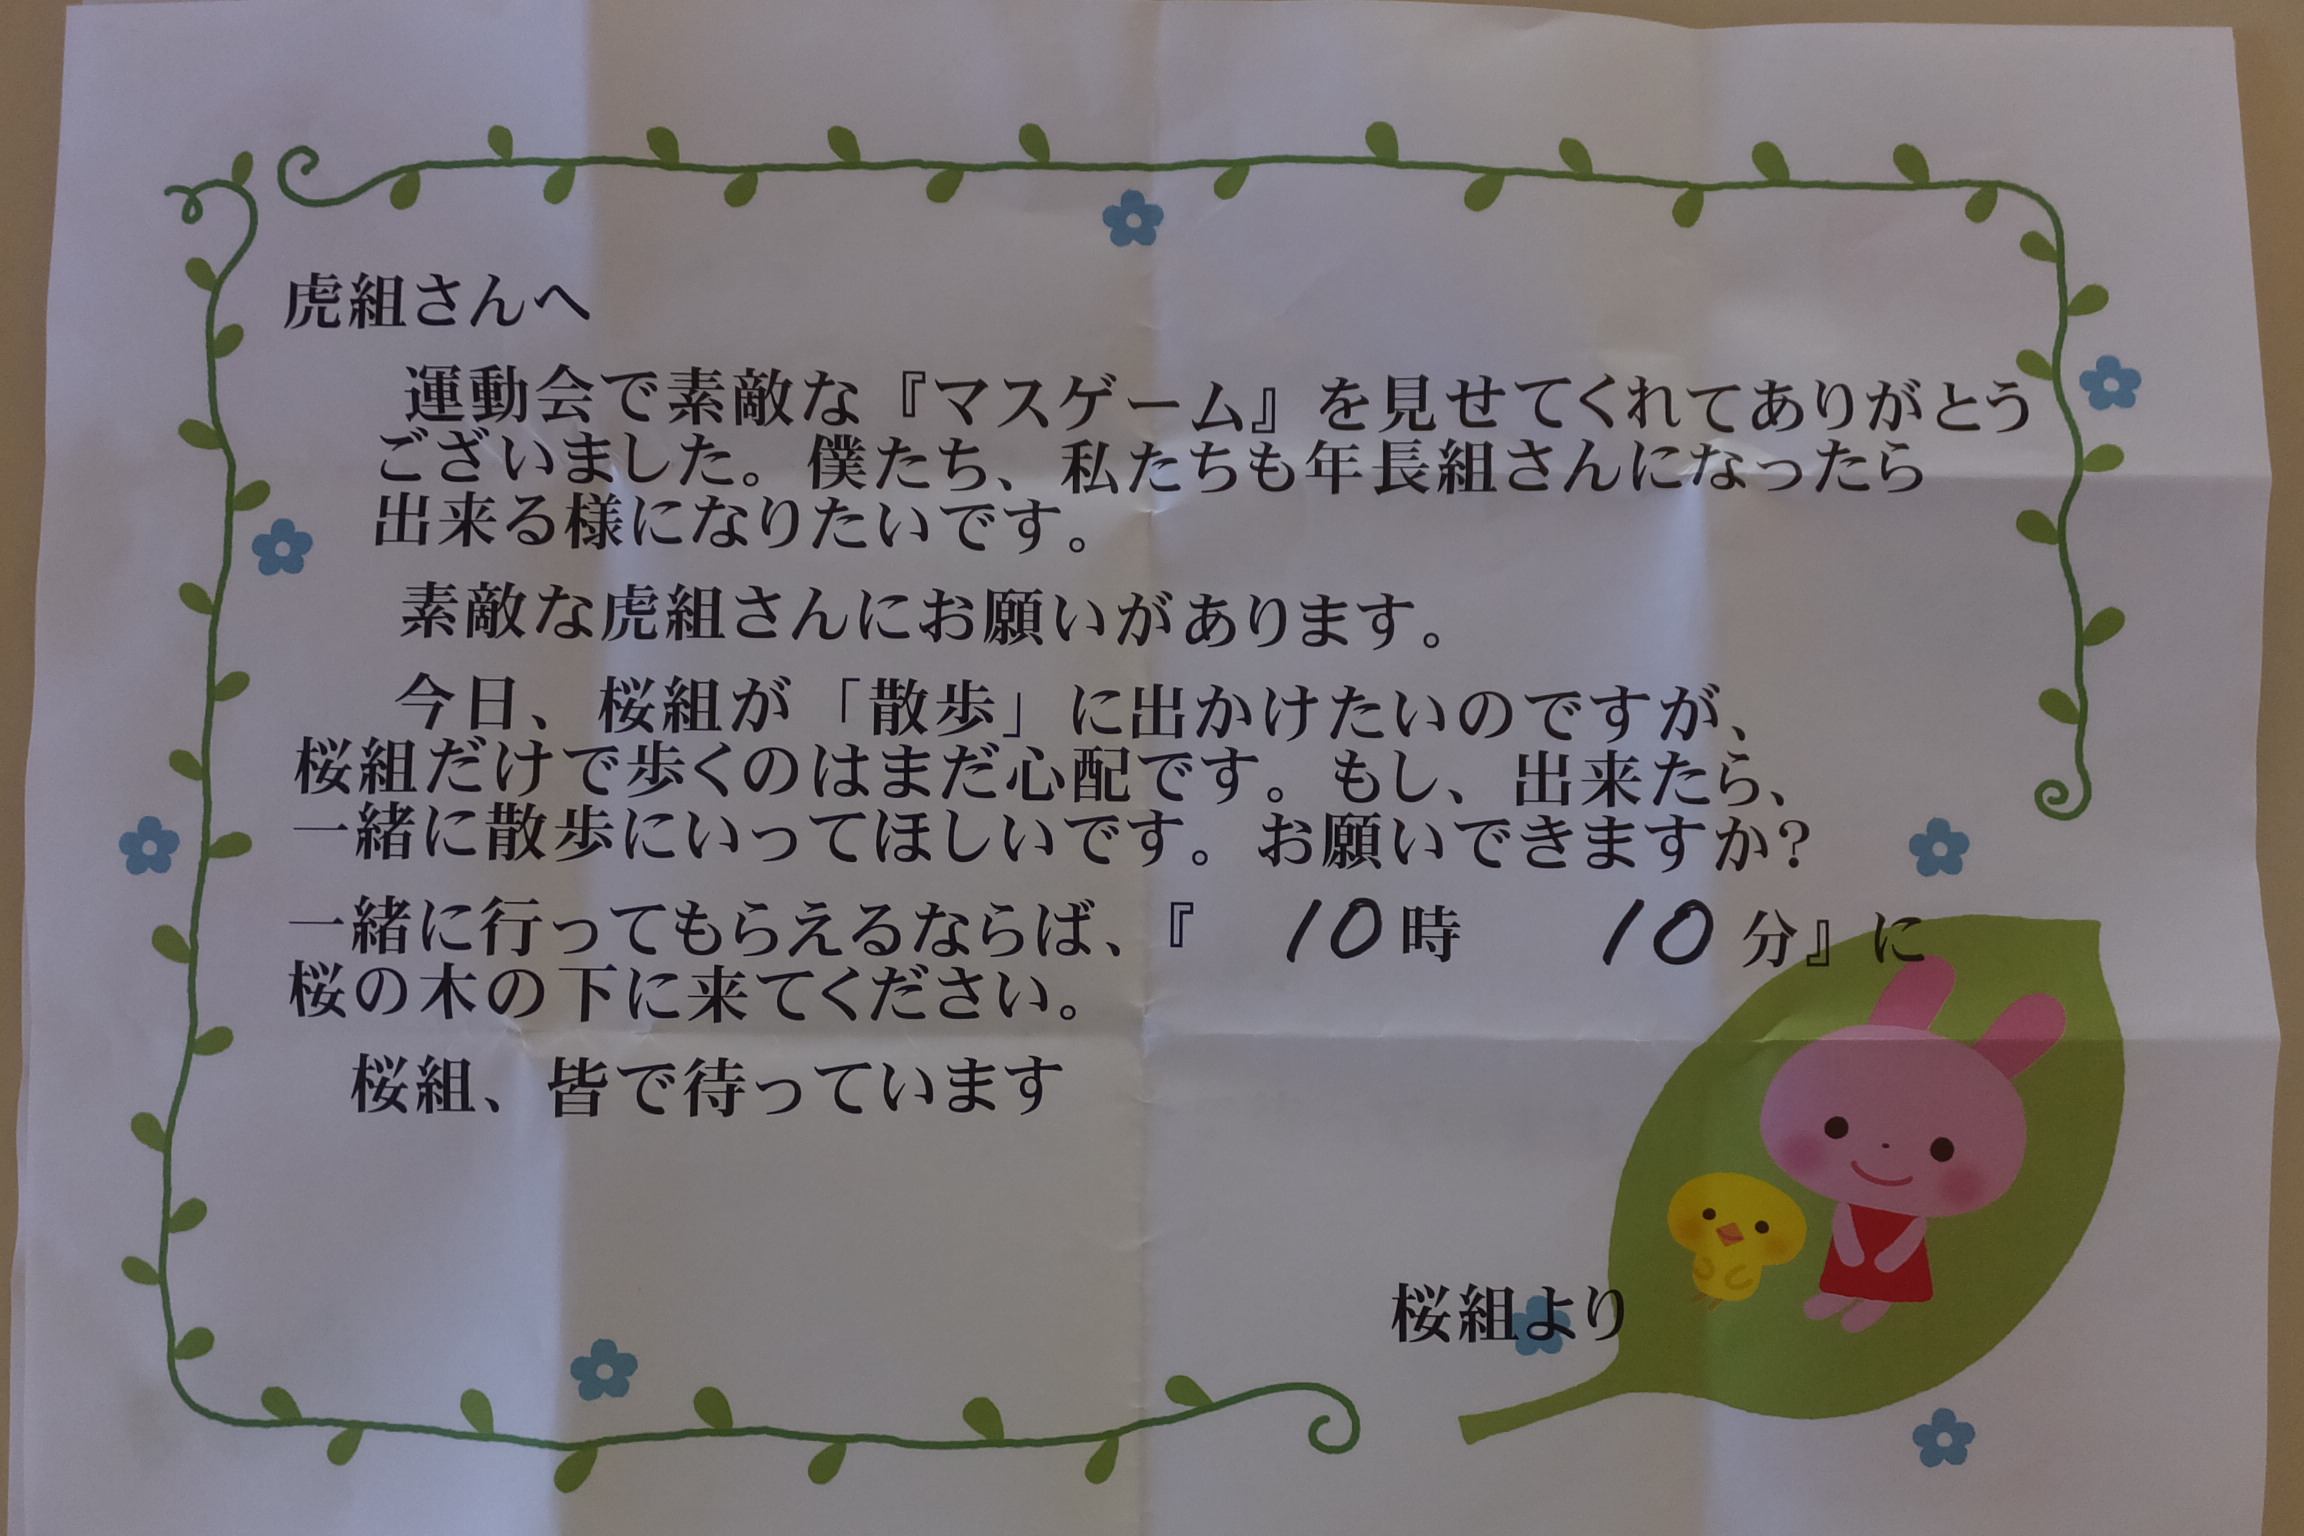 虎組さんへ
運動会で素敵な『マスゲーム』を見せてくれてありがとう
ございました。僕たち、私たちも年長組さんになったら
出来る様になりたいです。
素敵な虎組さんにお願いがあります。
今日、桜組が「散歩」に出かけたいのですが、
桜組だけで歩くのはまだ心配です。もし、出来たら、
一緒に散歩にいってほしいです。お願いできますか？
一緒に行ってもらえるならば、『 10時 10分』に
桜の木の下に来てください。
桜組、皆で待っています
桜組より